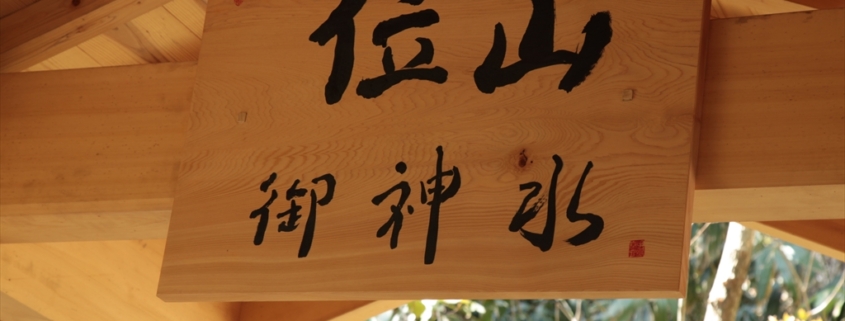 位山
御神水